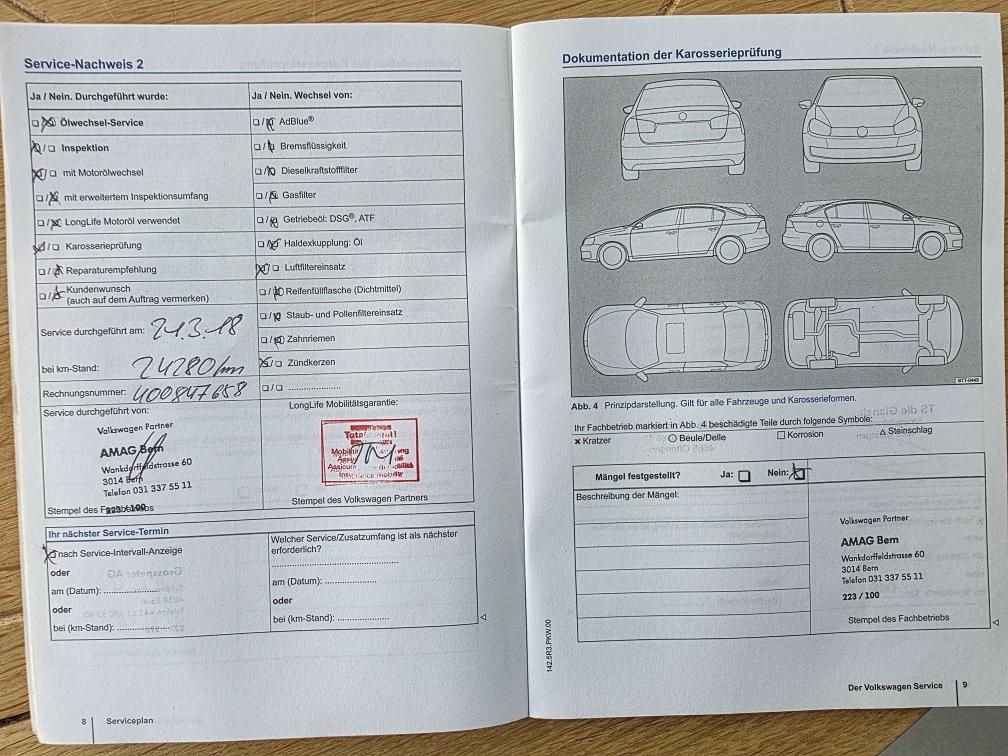 Service-Nachweis 2
Ja / Nein. Durchgeführt wurde:
Ölwechsel-Service
Inspektion
mit Motorölwechsel
mit erweitertem Inspektionsumfang
LongLife Motoröl verwendet
Karosserieprüfung
Reparaturempfehlung
Kundenwunsch
(auch auf dem Auftrag vermerken)
Service durchgeführt am: 21.3.18
bei km-Stand: 24280 km
Rechnungsnummer: 400847658
Service durchgeführt von:
Volkswagen Partner
AMAG Bern
Wankdorffeldstrasse 60
3014 Bern
Telefon 031 337 55 11
223/100
Stempel des Fachbetriebs
Ja / Nein. Wechsel von:
AdBlue®
Bremsflüssigkeit
Dieselkraftstofffilter
Gasfilter
Getriebeöl: DSG®, ATF
Haldexkupplung: Öl
Luftfiltereinsatz
Reifenfüllflasche (Dichtmittel)
Staub- und Pollenfiltereinsatz
Zahnriemen
Zündkerzen
LongLife Mobilitätsgarantie:
Stempel des Volkswagen Partners
Ihr nächster Service-Termin
nach Service-Intervall-Anzeige
oder
am (Datum): ....................
oder
bei (km-Stand): ....................
Welcher Service/Zusatzumfang ist als nächster
erforderlich?
am (Datum): ....................
oder
bei (km-Stand): ....................
8 Serviceplan
Dokumentation der Karosserieprüfung
BTT-0449
Abb. 4 Prinzipdarstellung. Gilt für alle Fahrzeuge und Karosserieformen.
Ihr Fachbetrieb markiert in Abb. 4 beschädigte Teile durch folgende Symbole:
× Kratzer ○ Beule/Delle □ Korrosion △ Steinschlag
Mängel festgestellt? Ja: Nein:
Beschreibung der Mängel:
Volkswagen Partner
AMAG Bern
Wankdorffeldstrasse 60
3014 Bern
Telefon 031 337 55 11
223 / 100
Stempel des Fachbetriebs
142.5R3.PKW.00
Der Volkswagen Service 9